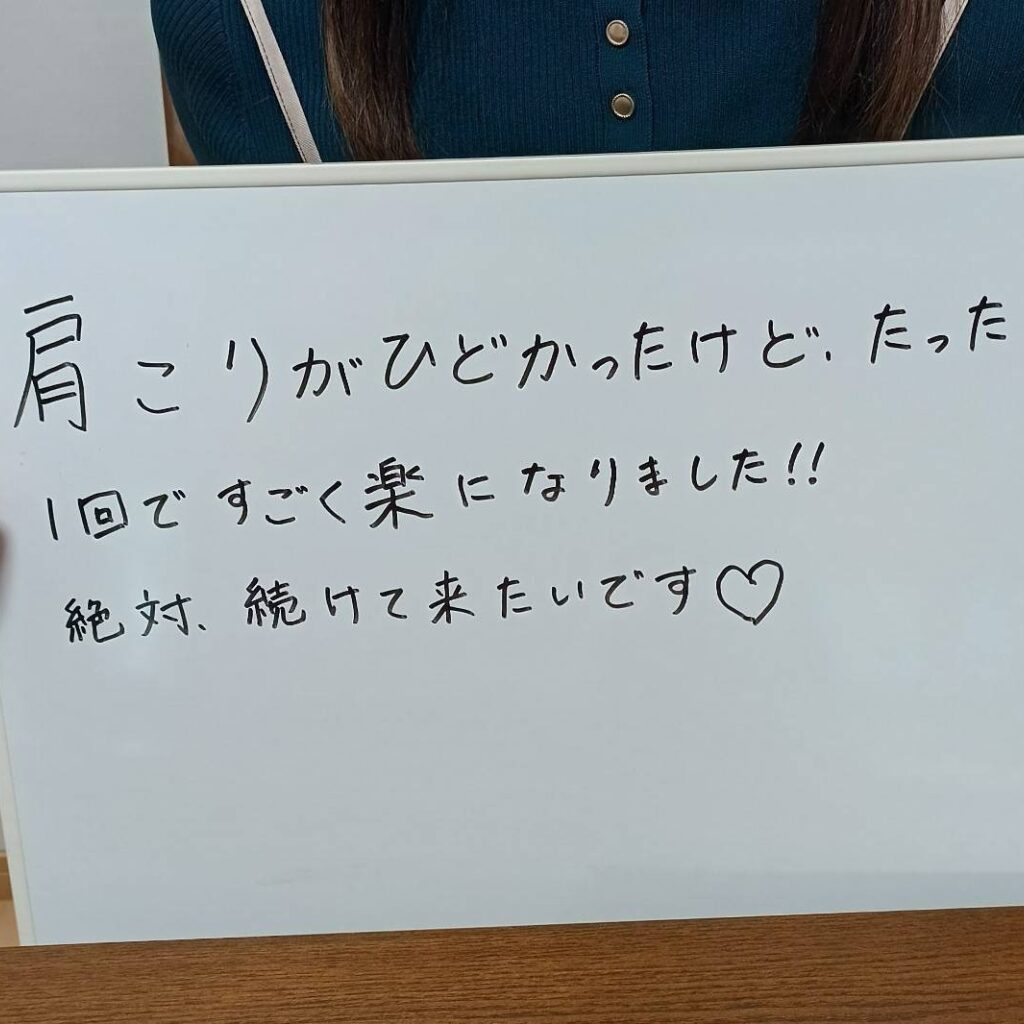 肩こりがひどかったけど、たった
1回ですごく楽になりました!!
絶対、続けて来たいです♡